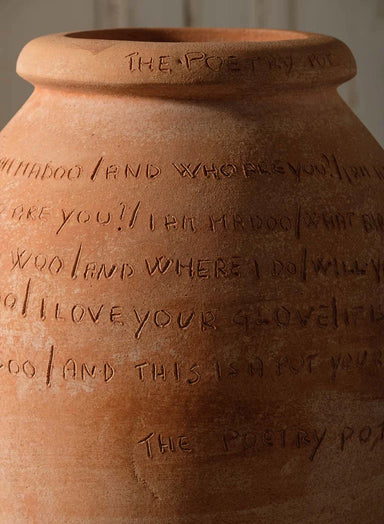 THE·POETRY POT
I AM MADOO/AND WHO ARE YOU?/I AM
ARE YOU?/I AM MADOO/WHAT
WOO/AND WHERE I DO/WILL Y
OO/I LOVE YOUR GLOVE/IF I
DOO/AND THIS IS A POT YOU
THE POETRY POT